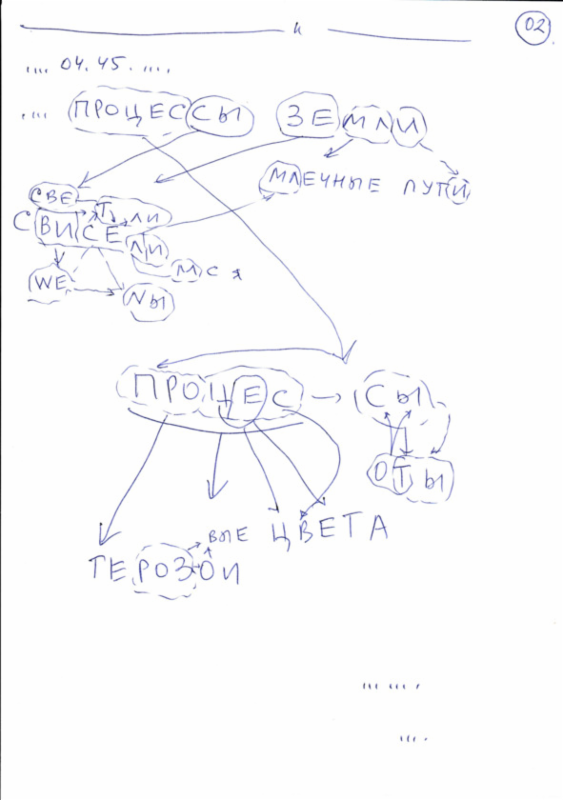 и 02
.... 04.45. ....,
.... ПРОЦЕССЫ ЗЕМЛИ
МЛЕЧНЫЕ ПУТИ
СВЕ Т ЛИ
СВИСЕЛИ
МСЯ
WE NЫ
ПРОЦЕС → СЫ
ОТЫ
ВЫЕ ЦВЕТА
ТЕРОЗОИ
... ... .
... .